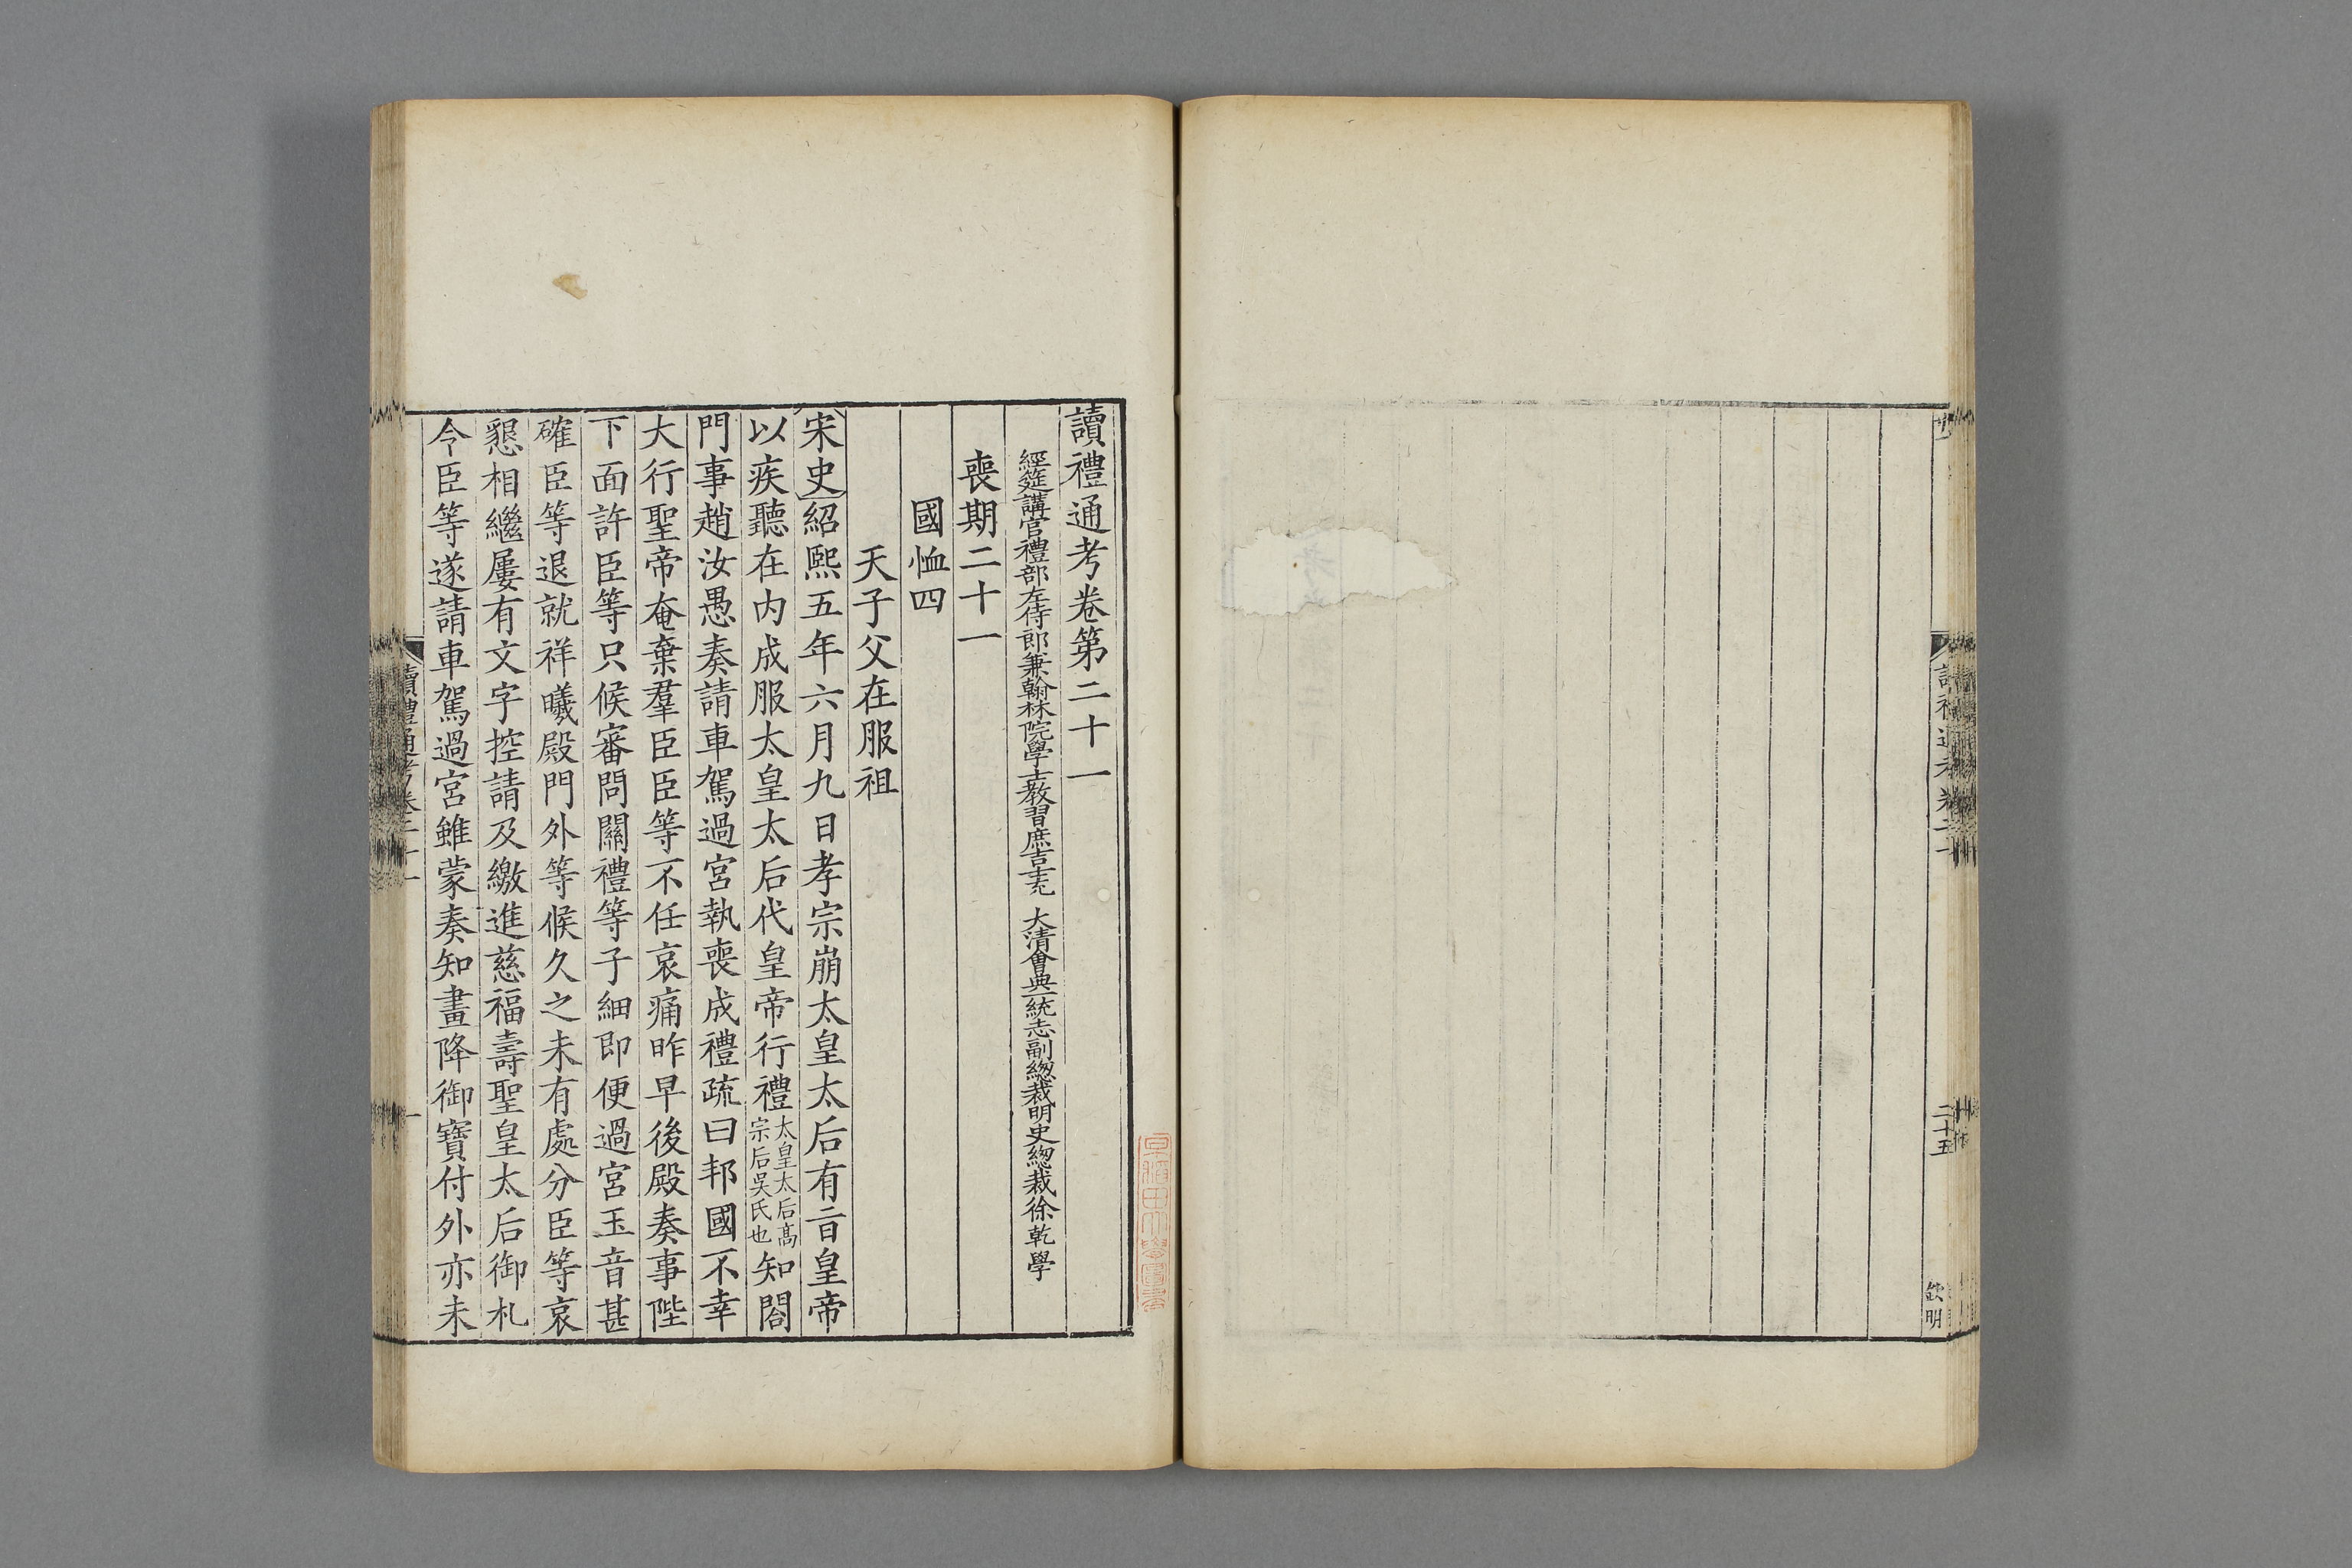 二十五
欽明
讀禮通考卷第二十一
經筵講官禮部左侍郎兼翰林院學士教習庶吉士充 大清會典一統志副總裁明史總裁徐乾學
喪期二十一
國恤四
天子父在服祖
宋史紹熙五年六月九日孝宗崩太皇太后有旨皇帝
以疾聽在内成服太皇太后代皇帝行禮太皇太后高宗后吳氏也知閤
門事趙汝愚奏請車駕過宮執喪成禮疏曰邦國不幸
大行聖帝奄棄羣臣臣等不任哀痛昨早後殿奏事陛
下面許臣等只候審問關禮等子細即便過宮玉音甚
確臣等退就祥曦殿門外等候久之未有處分臣等哀
懇相繼屢有文字控請及繳進慈福壽聖皇太后御札
今臣等遂請車駕過宮雖蒙奏知畫降御寶付外亦未
讀禮通考卷二十一
一
早稻田大學圖書